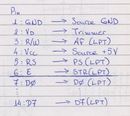 Pin
1 : GND → Source GND
2 : Vo → Trimmer
3 : R/W → AF (LPT)
4 : Vcc → Source +5V
5 : RS → PS (LPT)
6 : E → STR (LPT)
7 : D0 → D0 (LPT)
14 : D7 → D7 (LPT)